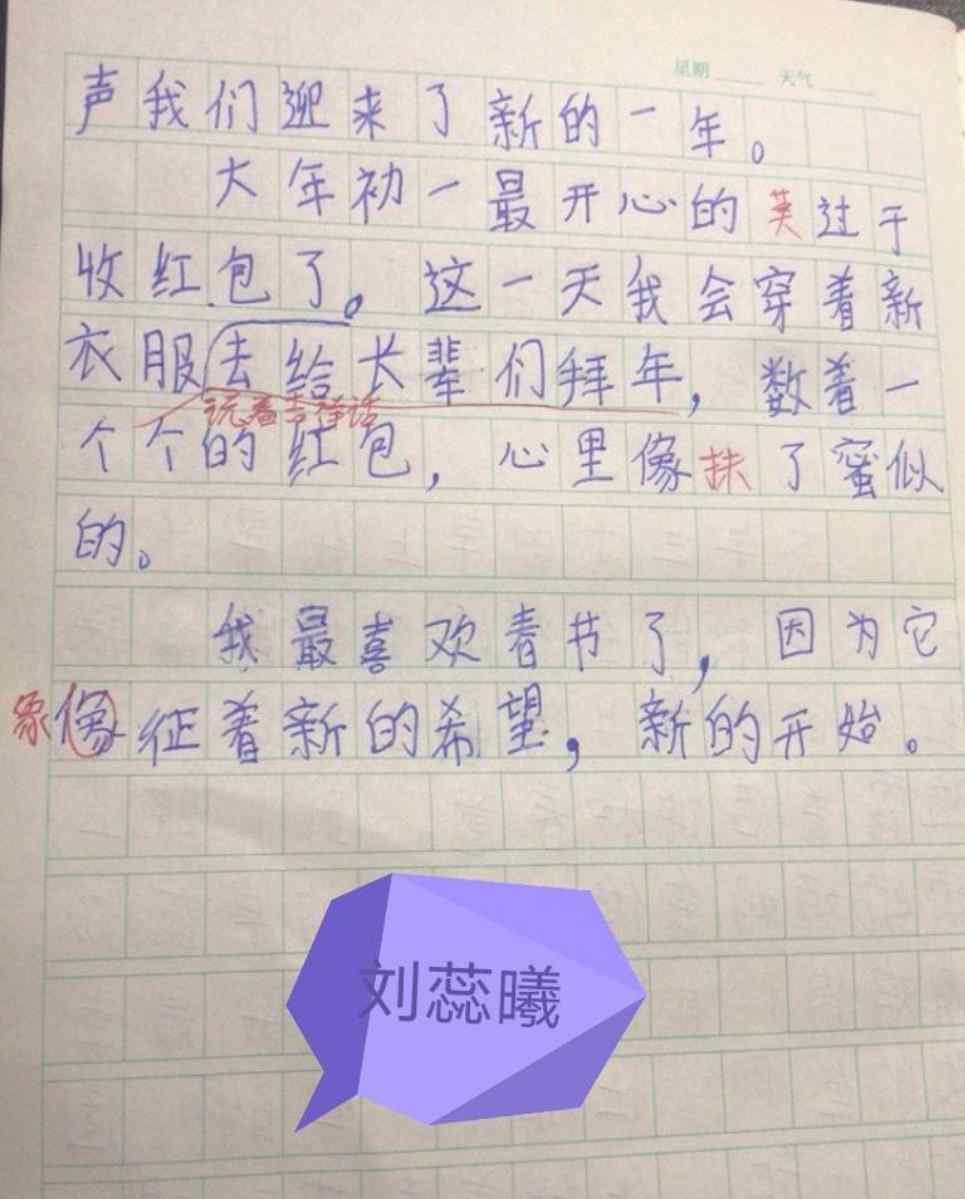 星期 天气
声我们迎来了新的一年。
大年初一最开心的莫过于
收红包了。这一天我会穿着新
衣服去给长辈们拜年,数着一
说着吉祥话
个个的红包,心里像抹了蜜似
的。
我最喜欢春节了,因为它
象像征着新的希望,新的开始。
刘蕊曦